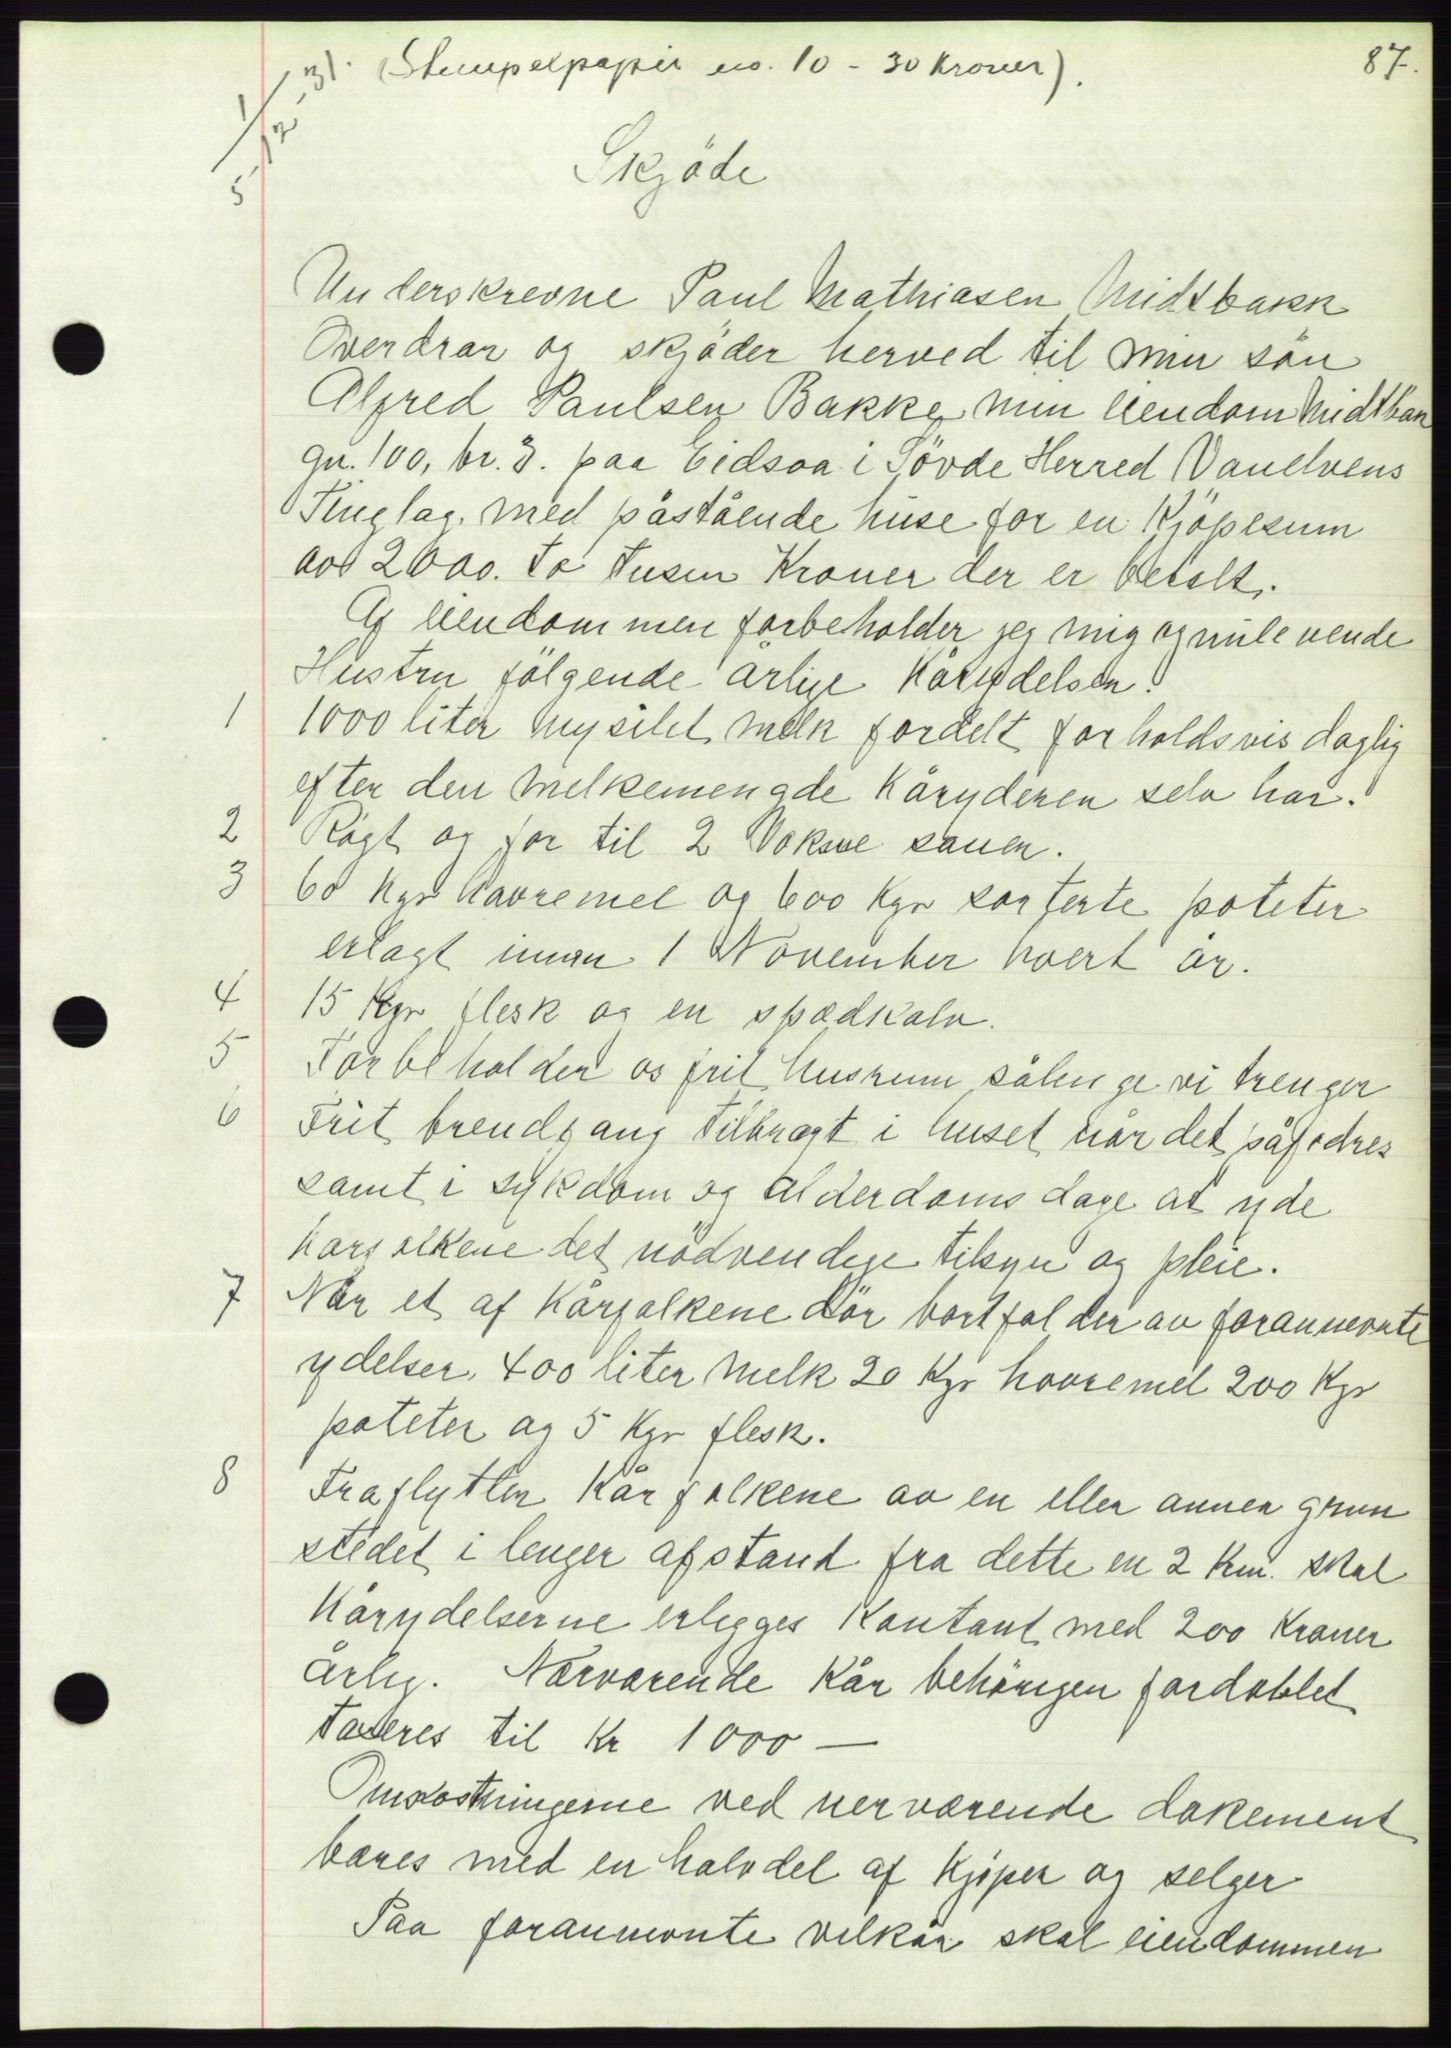 (Stempelpapir no. 10 - 30 Kroner).
87.
1/12-31.
5
Skjöde
Underskrevne Paul Mathiasen Midtbakk
Overdrar og skjöder herved til min sön
Alfred Paulsen Bakke min eiendom Midtbak
gn. 100, br. 3. paa Eidsaa i Sövde Herred Vanelvens
Tinglag. med påstående huse for en Kjöpesum
av 2000. to tusen Kroner der er betalt.
Af eiendommen forbeholder jeg mig og nulevende
Hustru fölgende årlige Kårydelser.
1 1000 liter nysilet melk fordelt forholdsvis daglig
efter den melkemengde Kåryderen selv har.
2 Rögt og for til 2 Voksne sauer.
3 60 Kgr havremel og 600 Kgr sorterte poteter
erlagt innen 1 November hvert år.
4 15 Kgr flesk og en spædkalv.
5 Forbeholder os frit husrum sålenge vi trenger
6 Frit brendfang tilbragt i huset når det påfodres
samt i sykdom og alderdoms dage at yde
kårfolkene det nödvendige tilsyn og pleie.
7 Når et af Kårfolkene dör bortfalder av forannevnte
ydelser. 400 liter melk 20 Kgr havremel 200 Kgr
poteter og 5 Kgr flesk.
8 Fraflytter Kårfolkene av en eller annen grun
stedet i lenger afstand fra dette en 2 Km. skal
Kårydelserne erlegges Kontant med 200 Kroner
årlig. Nærværende Kår behörigen fordoblet
taxeres til Kr 1000 —
Omkostningerne ved nerværende dokement
bæres med en halvdel af Kjöper og selger
Paa forannevnte vilkår skal eiendommen